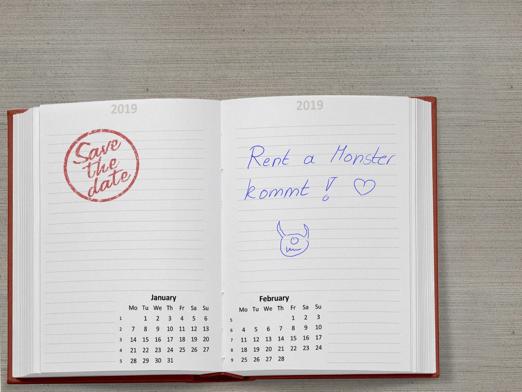 2019
Save
the
date
January
Mo Tu We Th Fr Sa Su
1 1 2 3 4 5 6
2 7 8 9 10 11 12 13
3 14 15 16 17 18 19 20
4 21 22 23 24 25 26 27
5 28 29 30 31
2019
Rent a Monster
kommt! ♡
February
Mo Tu We Th Fr Sa Su
5 1 2 3
6 4 5 6 7 8 9 10
7 11 12 13 14 15 16 17
8 18 19 20 21 22 23 24
9 25 26 27 28